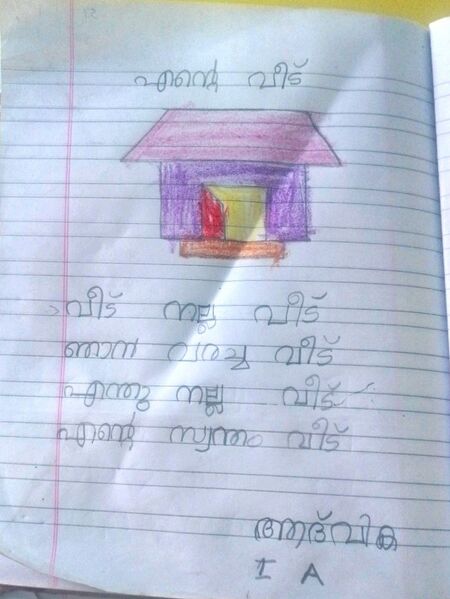 എന്റെ വീട്
വീട് നല്ല വീട്
ഞാൻ വരച്ച വീട്
എന്തു നല്ല വീട്
എന്റെ സ്വന്തം വീട്
ആദ്വിക
I A